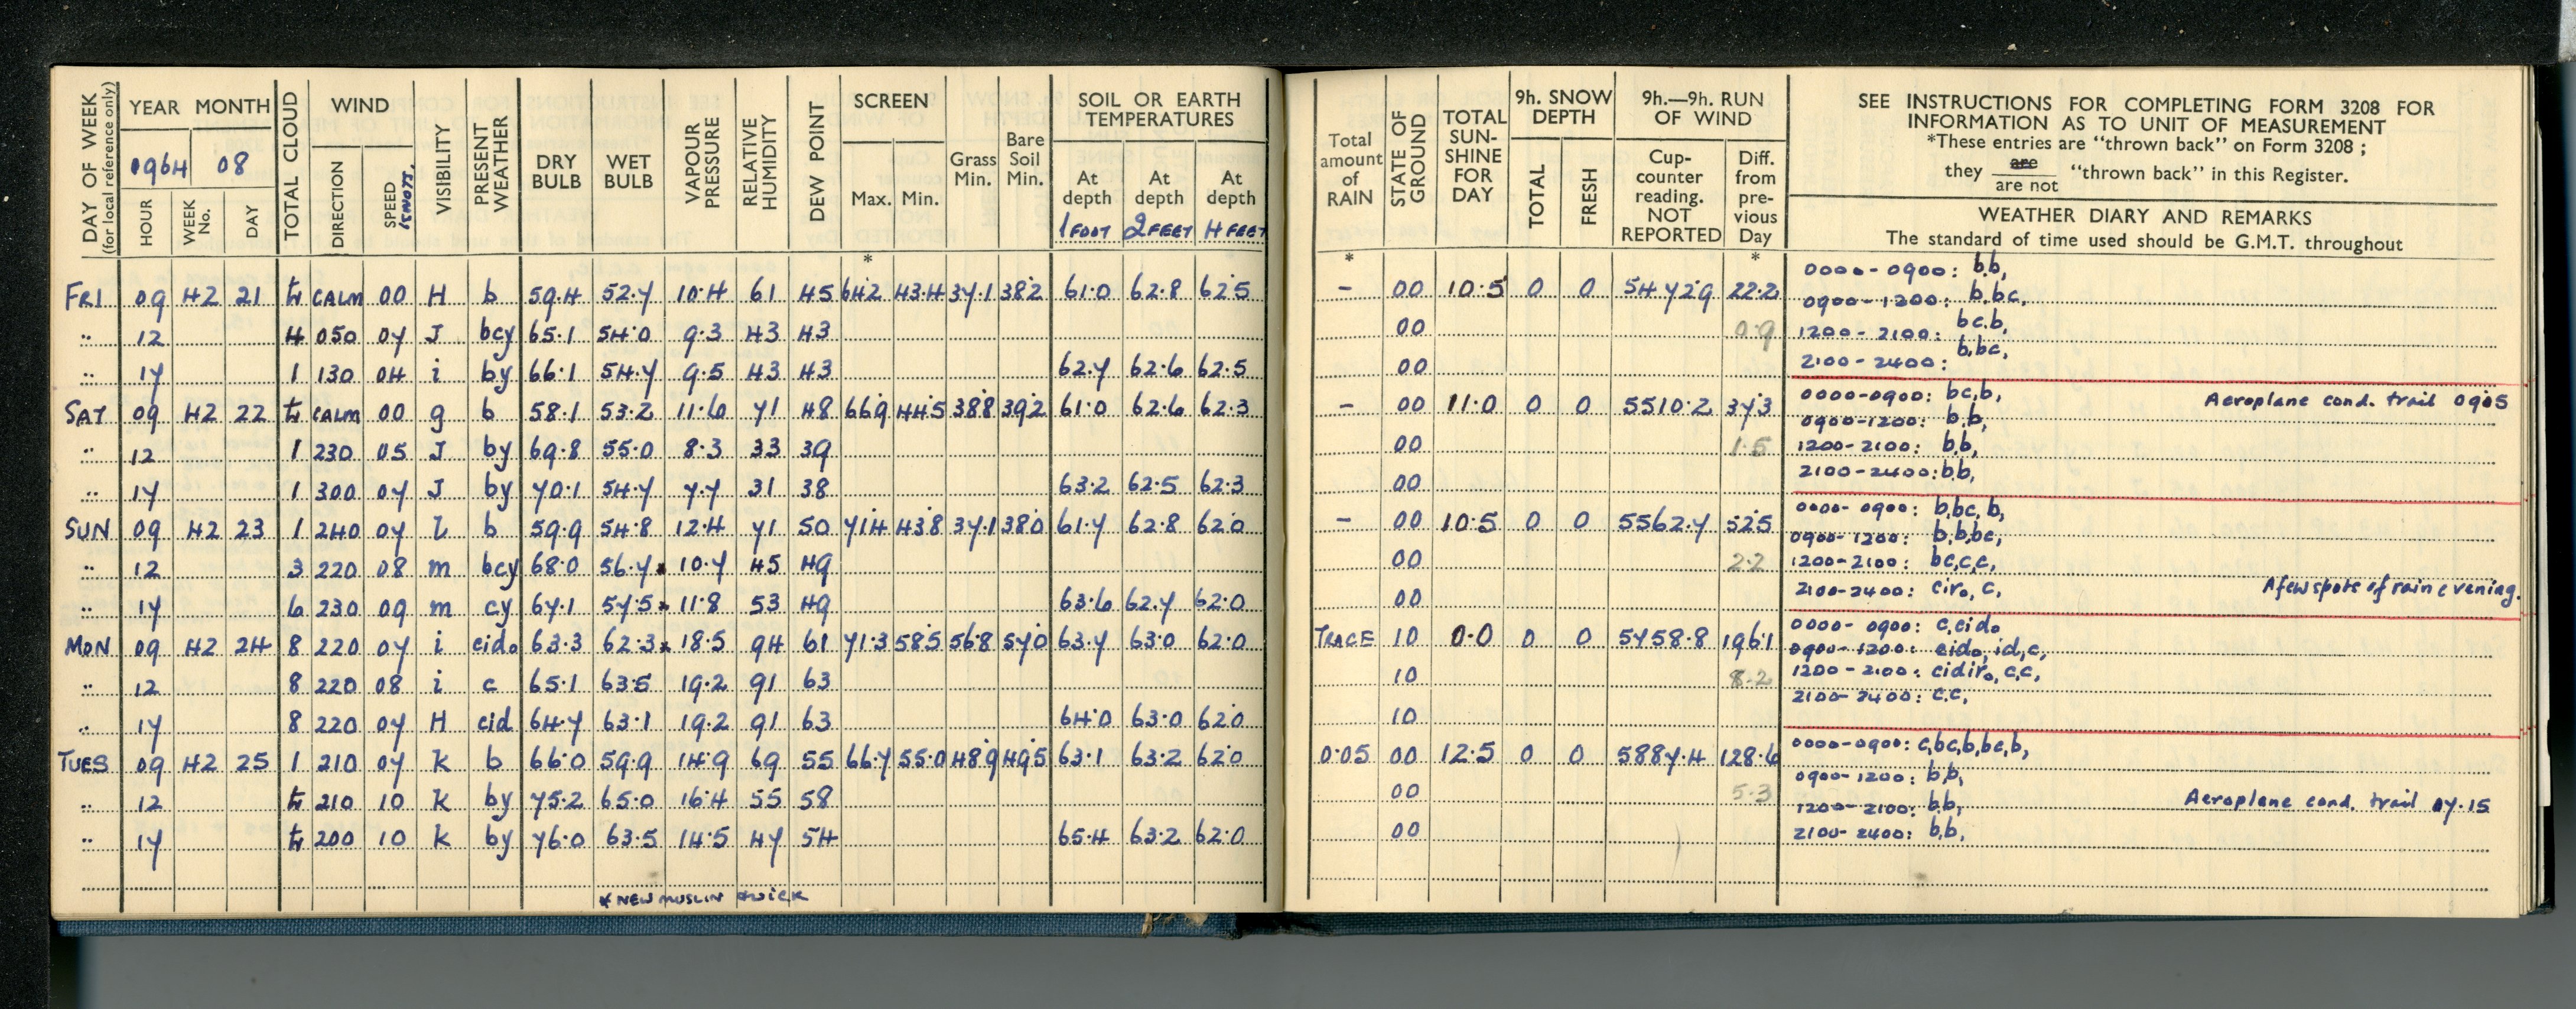 DAY OF WEEK
(for local reference only)
YEAR MONTH
0964 08
HOUR
WEEK No.
DAY
TOTAL CLOUD
WIND
DIRECTION
SPEED
KNOTS.
VISIBILITY
PRESENT WEATHER
DRY BULB
WET BULB
VAPOUR PRESSURE
RELATIVE HUMIDITY
DEW POINT
SCREEN
Max. Min.
Grass Min.
Bare Soil Min.
SOIL OR EARTH
TEMPERATURES
At depth At depth At depth
1 FOOT 2 FEET 4 FEET
*
FRI 09 42 21 tr CALM 00 H b 59.4 52.7 10.4 61 45 64.2 43.4 37.1 38.2 61.0 62.8 62.5
.. 12 4 050 07 J bcy 65.1 54.0 9.3 43 43
.. 17 1 130 04 i by 66.1 54.7 9.5 43 43 62.7 62.6 62.5
SAT 09 42 22 tr CALM 00 g b 58.1 53.2 11.6 71 48 66.9 44.5 38.8 39.2 61.0 62.6 62.3
.. 12 1 230 05 J by 69.8 55.0 8.3 33 39
.. 17 1 300 07 J by 70.1 54.7 7.7 31 38 63.2 62.5 62.3
SUN 09 42 23 1 240 07 l b 59.9 54.8 12.4 71 50 71.4 43.8 37.1 38.0 61.7 62.8 62.0
.. 12 3 220 08 m bcy 68.0 56.7 x 10.7 45 49
.. 17 6 230 09 m cy 67.1 57.5 x 11.8 53 49 63.6 62.7 62.0
MON 09 42 24 8 220 07 i cido 63.3 62.3 x 18.5 94 61 71.3 58.5 56.8 57.0 63.7 63.0 62.0
.. 12 8 220 08 i c 65.1 63.5 19.2 91 63
.. 17 8 220 07 H cid 64.7 63.1 19.2 91 63 64.0 63.0 62.0
TUES 09 42 25 1 210 07 k b 66.0 59.9 14.9 69 55 66.7 55.0 48.9 49.5 63.1 63.2 62.0
.. 12 tr 210 10 k by 75.2 65.0 16.4 55 58
.. 17 tr 200 10 k by 76.0 63.5 14.5 47 54 65.4 63.2 62.0
x NEW MUSLIN & WICK
Total amount of RAIN
STATE OF GROUND
TOTAL SUN-SHINE FOR DAY
9h. SNOW DEPTH
TOTAL
FRESH
9h.—9h. RUN OF WIND
Cup-counter reading. NOT REPORTED
Diff. from pre-vious Day
* *
SEE INSTRUCTIONS FOR COMPLETING FORM 3208 FOR
INFORMATION AS TO UNIT OF MEASUREMENT
*These entries are "thrown back" on Form 3208 ;
they are / are not "thrown back" in this Register.
WEATHER DIARY AND REMARKS
The standard of time used should be G.M.T. throughout
– 00 10.5 0 0 5472.9 22.2
00 0.9
00
– 00 11.0 0 0 5510.2 37.3
00 1.5
00
– 00 10.5 0 0 5562.7 52.5
00 2.2
00
TRACE 10 0.0 0 0 5758.8 196.1
10 8.2
10
0.05 00 12.5 0 0 5887.4 128.6
00 5.3
00
0000-0900: b.b,
0900-1200: b.bc,
1200-2100: bc.b,
2100-2400: b,bc,
0000-0900: bc,b, Aeroplane cond. trail 0905
0900-1200: b.b,
1200-2100: b.b,
2100-2400: b.b,
0000-0900: b,bc, b,
0900-1200: b.b,bc,
1200-2100: bc,c,c,
2100-2400: ciro, c, A few spots of rain evening.
0000-0900: c,cido
0900-1200: cido, id,c,
1200-2100: cidiro, c,c,
2100-2400: c.c,
0000-0900: c,bc,b,bc,b,
0900-1200: b.b,
1200-2100: b.b, Aeroplane cond. trail 07.15
2100-2400: b,b,